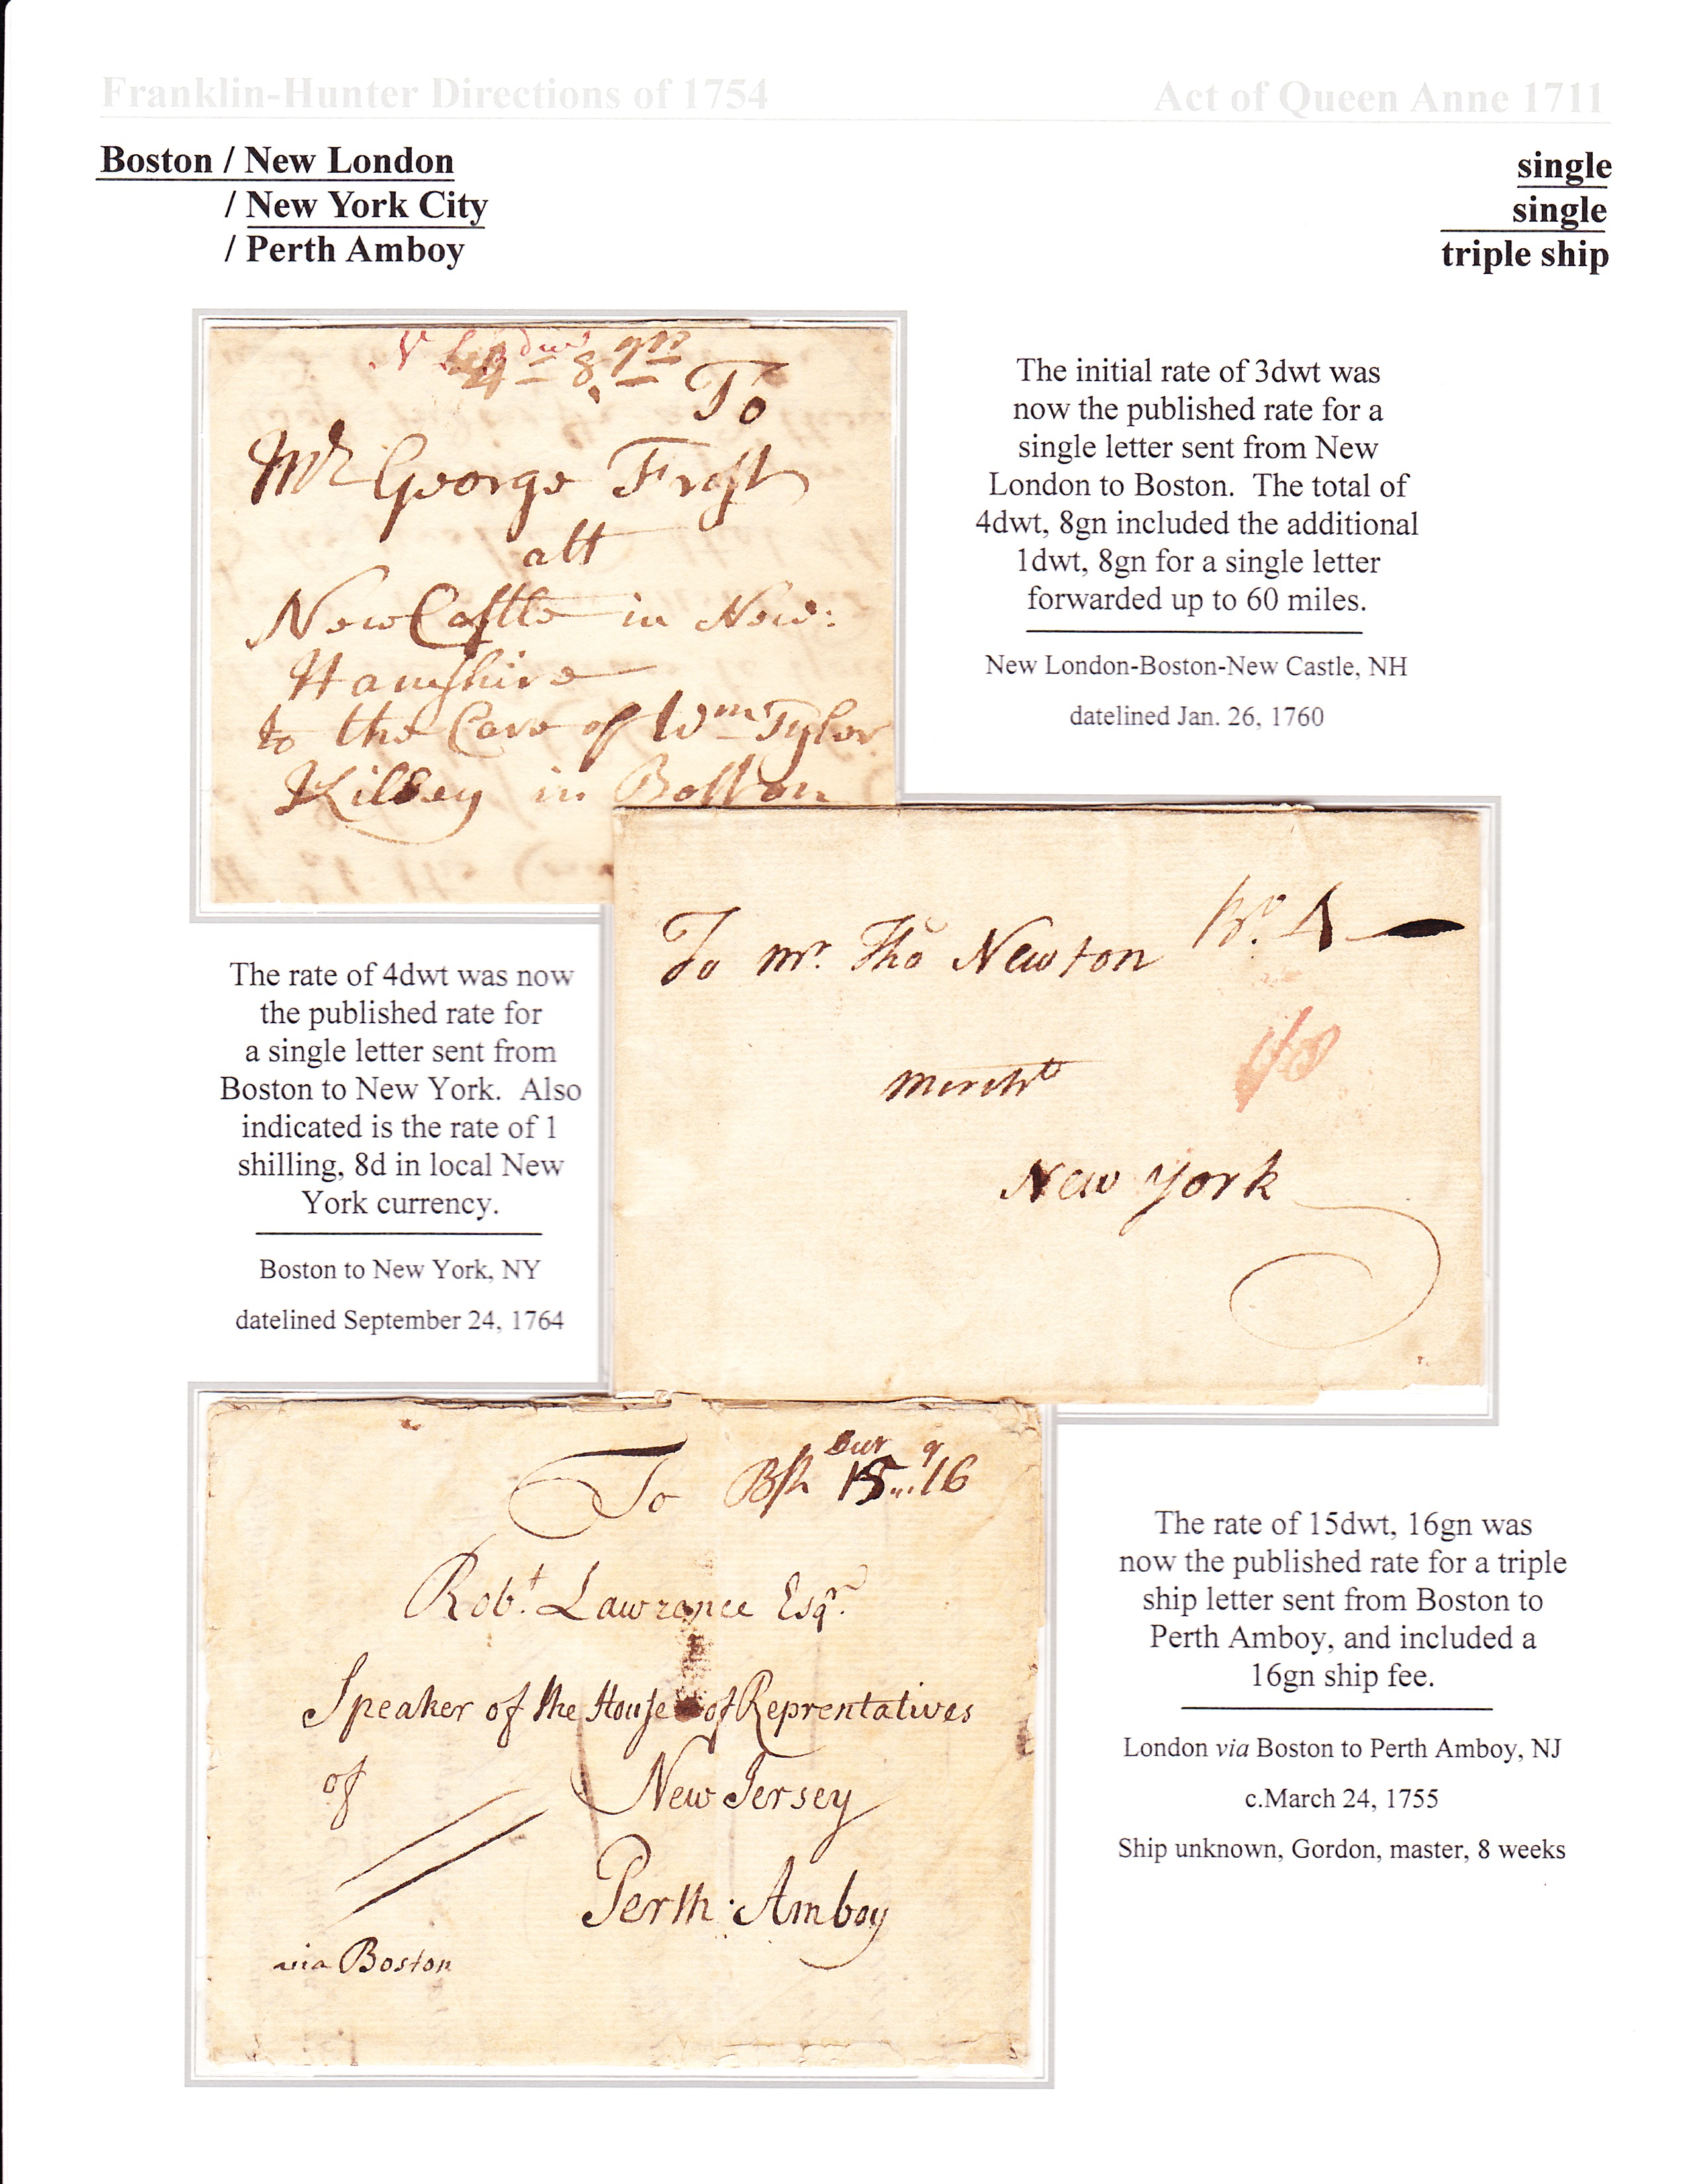 Franklin-Hunter Directions of 1754 Act of Queen Anne 1711
Boston / New London single
/ New York City single
/ Perth Amboy triple ship
4 8 gn
To
Mr George Frost
att
New Castle in New:
Hamshire
to the Care of Wm Tyler
Kilbey in Boston
The initial rate of 3dwt was
now the published rate for a
single letter sent from New
London to Boston. The total of
4dwt, 8gn included the additional
1dwt, 8gn for a single letter
forwarded up to 60 miles.
New London-Boston-New Castle, NH
datelined Jan. 26, 1760
To Mr. Tho Newton Bo. 4
Mercht
1/8
New York
The rate of 4dwt was now
the published rate for
a single letter sent from
Boston to New York. Also
indicated is the rate of 1
shilling, 8d in local New
York currency.
Boston to New York, NY
datelined September 24, 1764
To Bsn dwt 15 .. g 16
Robt. Lawrance Esqr.
Speaker of the House of Reprentatives
of New Jersey
Perth Amboy
via Boston
The rate of 15dwt, 16gn was
now the published rate for a triple
ship letter sent from Boston to
Perth Amboy, and included a
16gn ship fee.
London via Boston to Perth Amboy, NJ
c.March 24, 1755
Ship unknown, Gordon, master, 8 weeks